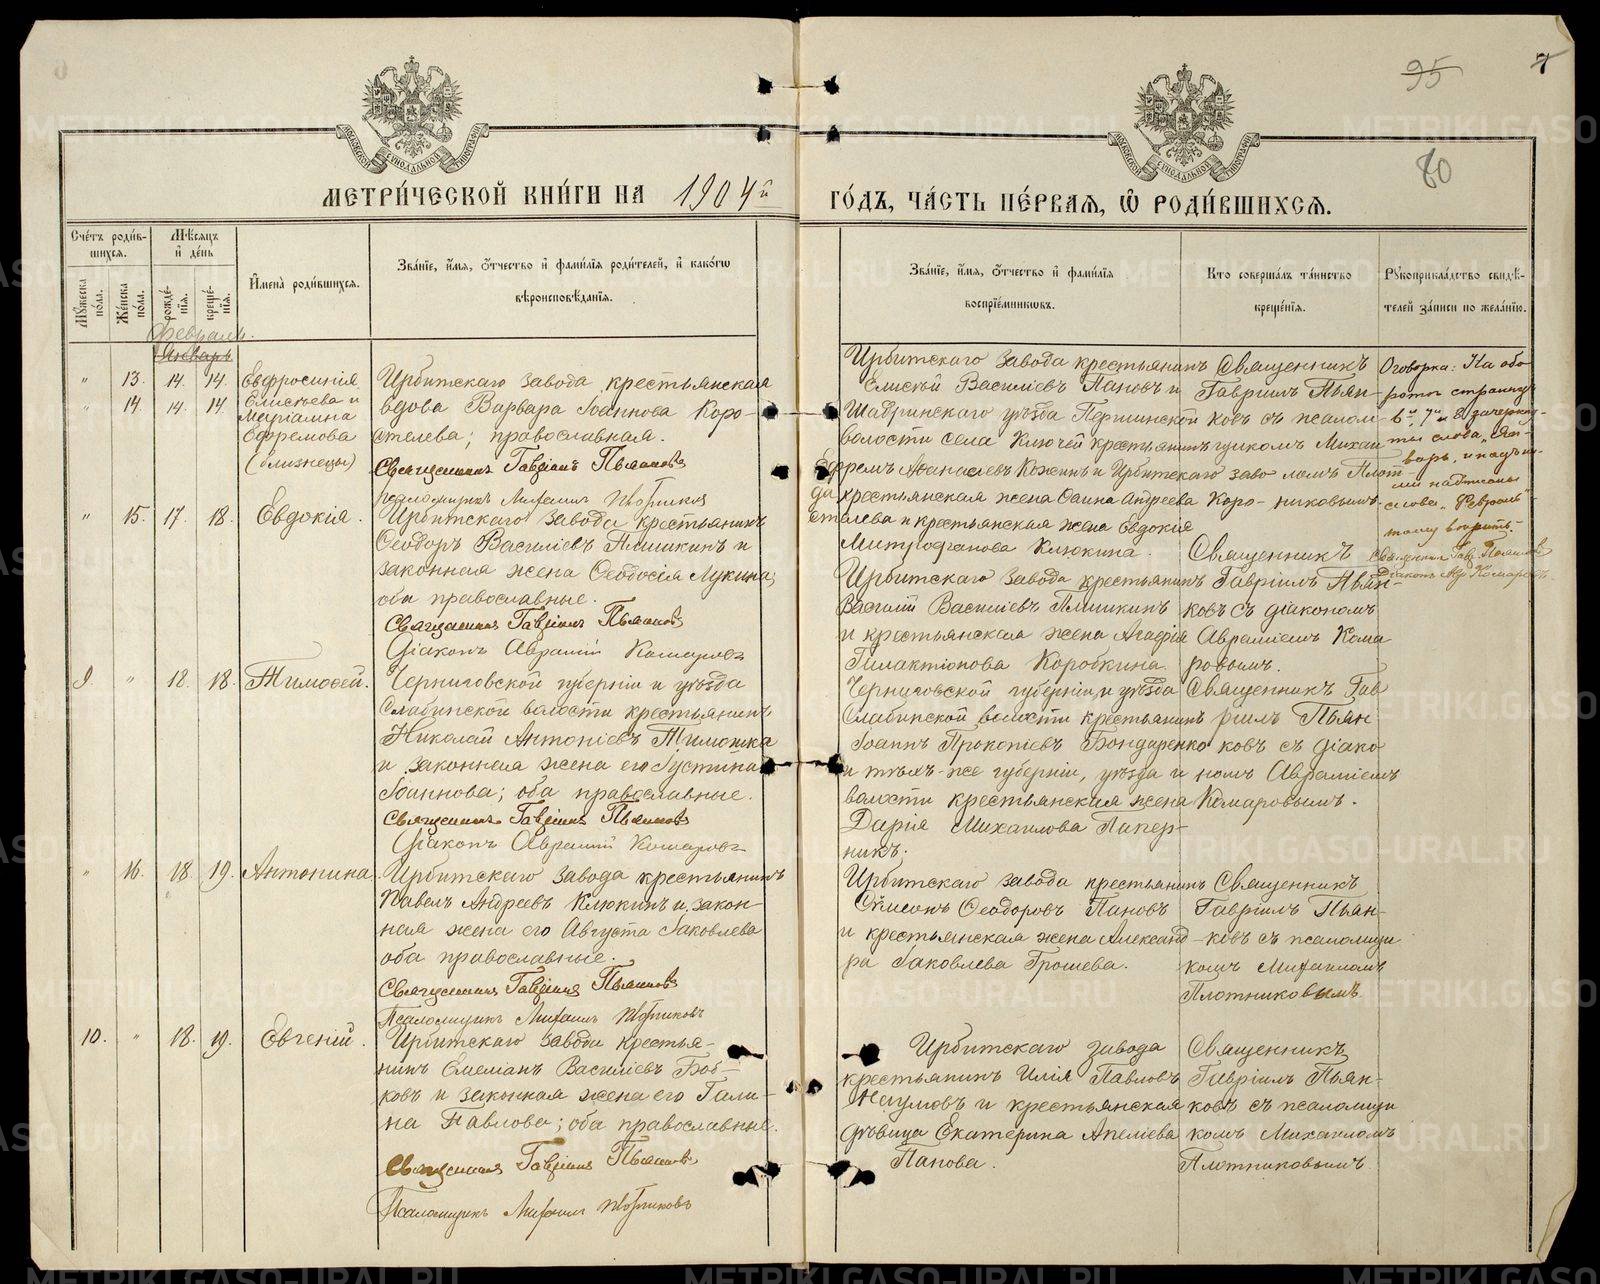 95
7
80
МЕТРИ́ЧЕСКОЙ КНИ́ГИ НА 1904й ГО́ДЪ, ЧА́СТЬ ПЕ́РВАЯ, Ѡ РОДИ́ВШИХСЯ.
Сче́тъ роди́в-
шихся.
Му́жеска по́ла.
Же́нска по́ла.
Мѣ́сяцъ
и҆ де́нь
рожде́-
нїя.
креще́-
нїя.
И҆мена̀ роди́вшихся.
Зва́нїе, и҆́мя, ѻ҆́тчество и҆ фами́лїя роди́телей, и҆ како́гѡ
вѣроисповѣ́данїя.
Зва́нїе, и҆́мя, ѻ҆́тчество и҆ фами́лїя
воспрїе́мниковъ.
Кто̀ соверша́лъ та́инство
креще́нїя.
Рꙋкоприкла́дство свидѣ́-
телей за́писи по жела́нїю.
Февраль.
Январь
" 13. 14. 14. Евфросинія
" 14. 14. 14. Елисѣева и
Маріамна
Ефремова
(близнецы)
Ирбитскаго завода крестьянская
вдова Варвара Іоаннова Коро-
стелева; православная.
Священникъ Гавріилъ Пьянковъ
псаломщикъ Михаилъ Плотников
Ирбитскаго завода крестьянинъ
Елисѣй Василіевъ Пановъ и
Шадринскаго уѣзда Першинской
волости села Ключей крестьянинъ
Ефремъ Аѳанасіевъ Кожинъ и Ирбитскаго заво
да крестьянская жена Фаина Андреева Коро-
стелева и крестьянская жена Евдокія
Митрофанова Клюкина.
Священникъ
Гавріилъ Пьян-
ковъ съ псалом-
щикомъ Михаи
ломъ Плот
никовымъ.
Оговорка: На обо
ротѣ страницы
6й, 7й и 8 зачеркну-
ты слова „Ян-
варь, и надъ ни-
ми надписаны
слова „Февраль"
тому вѣрить.
Священникъ Гавр. Пьянковъ
Діаконъ Авр. Комаровъ
" 15. 17. 18. Евдокія.
Ирбитскаго завода крестьянинъ
Ѳеодоръ Василіевъ Пшишкинъ и
законная жена Ѳеодосія Лукина;
оба православные.
Священникъ Гавріилъ Пьянковъ
Діаконъ Аврамій Комаровъ
Ирбитскаго завода крестьянинъ
Василій Василіевъ Пшишкинъ
и крестьянская жена Агафія
Галактіонова Коробкина.
Священникъ
Гавріилъ Пьян-
ковъ съ діакономъ
Авраміемъ Кома
ровымъ.
9. " 18. 18. Тимоѳей.
Черниговской губерніи и уѣзда
Слабинской волости крестьянинъ
Николай Антоніевъ Тимошка
и законная жена его Іустина
Іоаннова; оба православные.
Священникъ Гавріилъ Пьянковъ
Діаконъ Аврамій Комаровъ
Черниговской губерніи и уѣзда
Слабинской волости крестьянинъ
Іоаннъ Прокопіевъ Бондаренко
и тѣхъ-же губерніи, уѣзда и
волости крестьянская жена
Дарія Михаилова Папер-
никъ.
Священникъ Гав
ріилъ Пьян
ковъ съ діако
номъ Авраміемъ
Комаровымъ.
" 16. 18. 19. Антонина.
Ирбитскаго завода крестьянинъ
Павелъ Андреевъ Клюкинъ и закон-
ная жена его Августа Іаковлева
оба православные.
Священникъ Гавріилъ Пьянковъ
Псаломщикъ Михаилъ Плотниковъ
Ирбитскаго завода крестьянинъ
Сѵмеонъ Ѳеодоровъ Пановъ
и крестьянская жена Александ-
ра Іаковлева Грошева.
Священникъ
Гавріилъ Пьян-
ковъ съ псаломщи
комъ Михаиломъ
Плотниковымъ.
10. " 18. 19. Евгеній.
Ирбитскаго завода крестья-
нинъ Емеліанъ Василіевъ Боб-
ковъ и законная жена его Гали-
на Павлова; оба православные.
Священникъ Гавріилъ Пьянковъ
Псаломщикъ Михаилъ Плотниковъ
Ирбитскаго завода
крестьянинъ Илія Павловъ
Наумовъ и крестьянская
дѣвица Екатерина Апеліева
Панова.
Священникъ
Гавріилъ Пьян-
ковъ съ псаломщи
комъ Михаиломъ
Плотниковымъ
METRIKI.GASO-URAL.RU